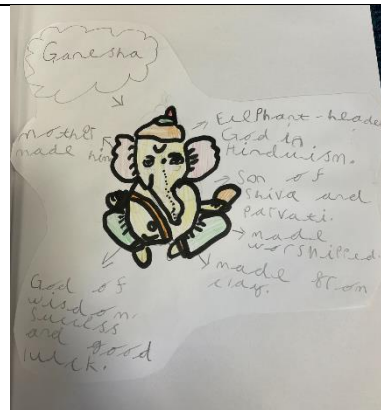 Ganesha
mother
made him
Eelphant-headed
God in
Hinduism.
Son of
Shiva and
Parvati.
made
worshipped.
made from
clay.
God of
wisdom.
success
and good
luck.